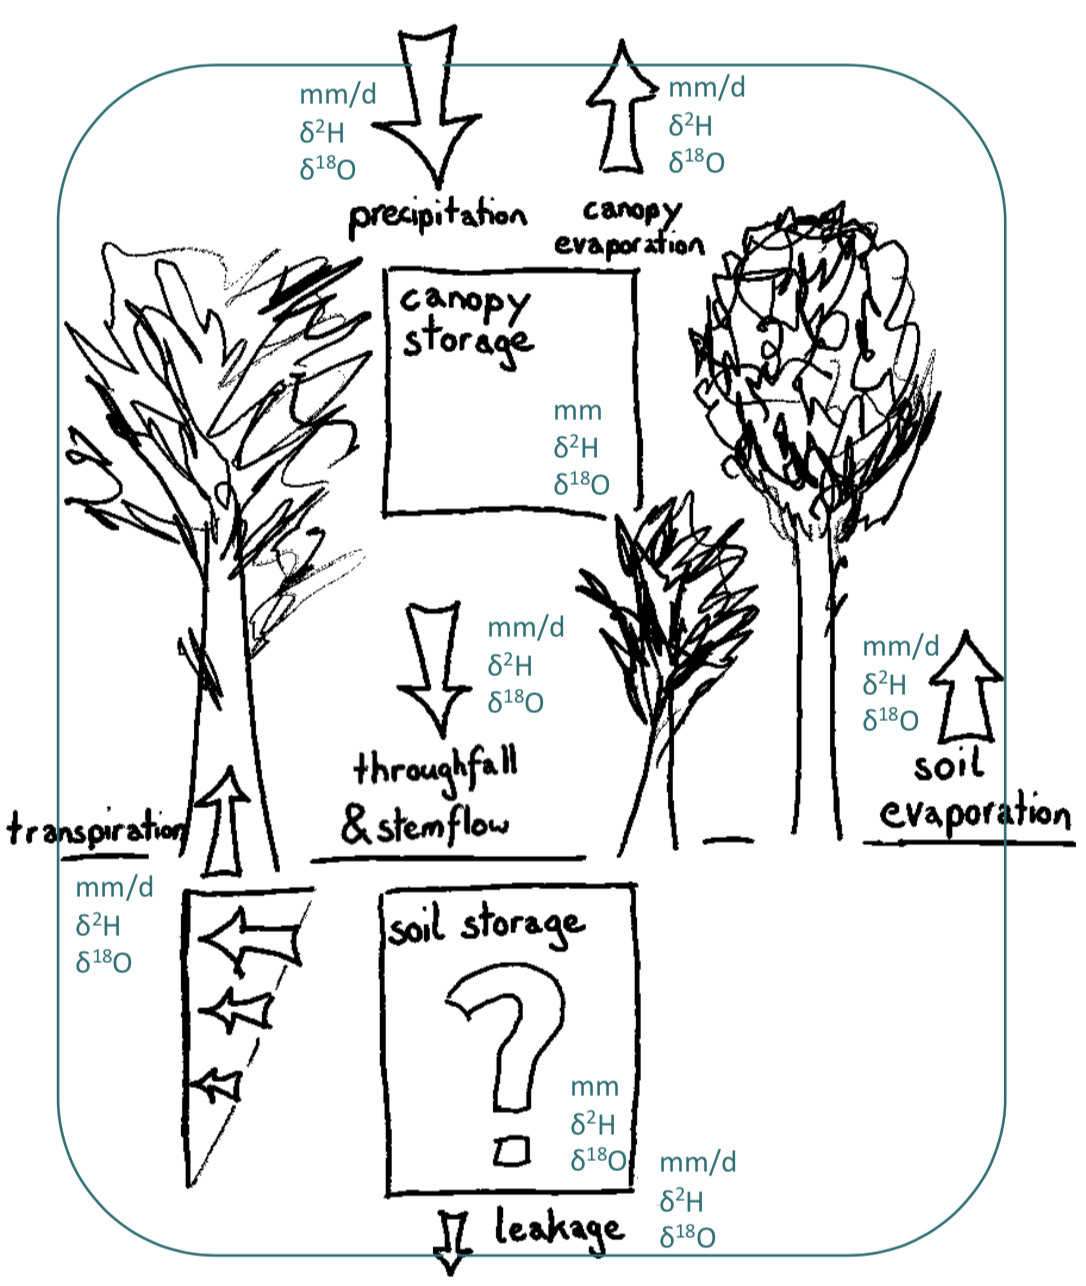 mm/d
δ²H
δ¹⁸O
precipitation
mm/d
δ²H
δ¹⁸O
canopy
evaporation
canopy
storage
mm
δ²H
δ¹⁸O
mm/d
δ²H
δ¹⁸O
throughfall
& stemflow
mm/d
δ²H
δ¹⁸O
soil
evaporation
transpiration
mm/d
δ²H
δ¹⁸O
soil storage
?
mm
δ²H
δ¹⁸O
mm/d
δ²H
δ¹⁸O
leakage